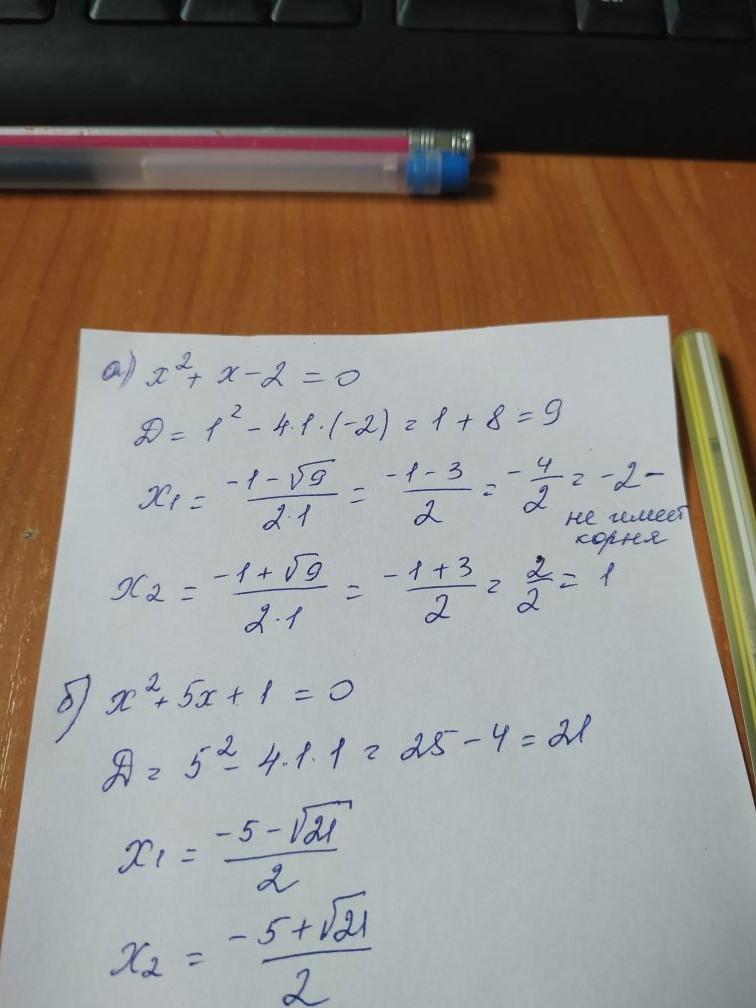 а) x² + x - 2 = 0
Д = 1² - 4·1·(-2) = 1 + 8 = 9
x₁ = (-1 - √9)/(2·1) = (-1 - 3)/2 = -4/2 = -2 -
не имеет
корня
x₂ = (-1 + √9)/(2·1) = (-1 + 3)/2 = 2/2 = 1
б) x² + 5x + 1 = 0
Д = 5² - 4·1·1 = 25 - 4 = 21
x₁ = (-5 - √21)/2
x₂ = (-5 + √21)/2